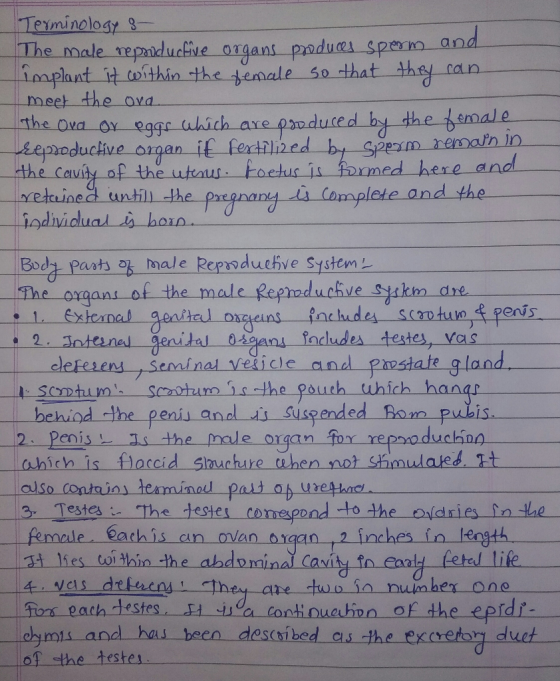 Terminology :-
The male reproductive organs produces sperm and
implant it within the female so that they can
meet the ova.
The ova or eggs which are produced by the female
Reproductive organ if fertilized by sperm remain in
the cavity of the uterus. Foetus is formed here and
retained untill the pregnany is complete and the
individual is born.
Body parts of male Reproductive system:-
The organs of the male Reproductive System are
• 1. External genital organs includes scrotum, & penis.
• 2. Internal genital organs includes testes, vas
deferens, seminal vesicle and prostate gland.
1. Scrotum:- scrotum is the pouch which hangs
behind the penis and is suspended from pubis.
2. Penis:- Is the male organ for reproduction
which is flaccid structure when not stimulated. It
also contains terminal part of urethra.
3. Testes:- The testes correspond to the ovaries in the
female. Each is an ovan organ, 2 inches in length.
It lies within the abdominal cavity in early fetal life
4. vas deferens: They are two in number one
for each testes. It is a continuation of the epidi-
dymis and has been described as the excretory duct
of the testes.